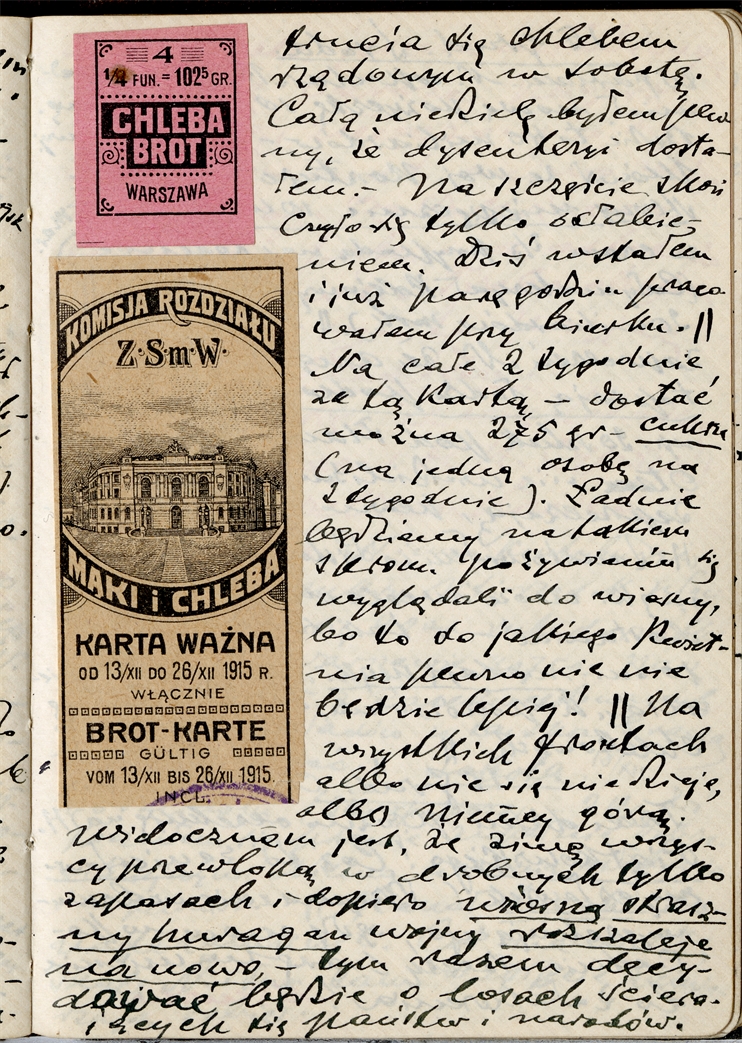 4
1/4 FUN. = 102⁵ GR.
CHLEBA
BROT
WARSZAWA
KOMISJA ROZDZIAŁU
Z·S·m·W·
MĄKI i CHLEBA
KARTA WAŻNA
OD 13/XII DO 26/XII 1915 R.
WŁĄCZNIE
BROT-KARTE
GÜLTIG
VOM 13/XII BIS 26/XII 1915.
INCL.
trucia się chlebem
rządowym w sobotę.
Całą niedzielę byłem pew
ny, że dysenteryi dosta-
łem. – Na szczęście skoń
czyło się tylko osłabie-
niem. Dziś wstałem
i już parę godzin praco
wałem przy biurku. ||
Na całe 2 tygodnie
za tą kartą – dostać
można 275 gr – cukru
(na jedną osobę na
2 tygodnie). Ładnie
będziemy na takiem
skrom. pożywieniu się
wyglądali do wiosny,
bo to do jakiego kwiet-
nia pewno nic nie
będzie lepiej! || Na
wszystkich frontach
albo nic się nie dzieje,
albo Niemcy górą.
Widocznem jest, że zimę wszys-
cy przewloką w drobnych tylko
zapasach i dopiero wiosną strasz-
ny huragan wojny rozszaleje
na nowo, – tym razem decy-
dować będzie o losach ściera-
jących się państw i narodów.